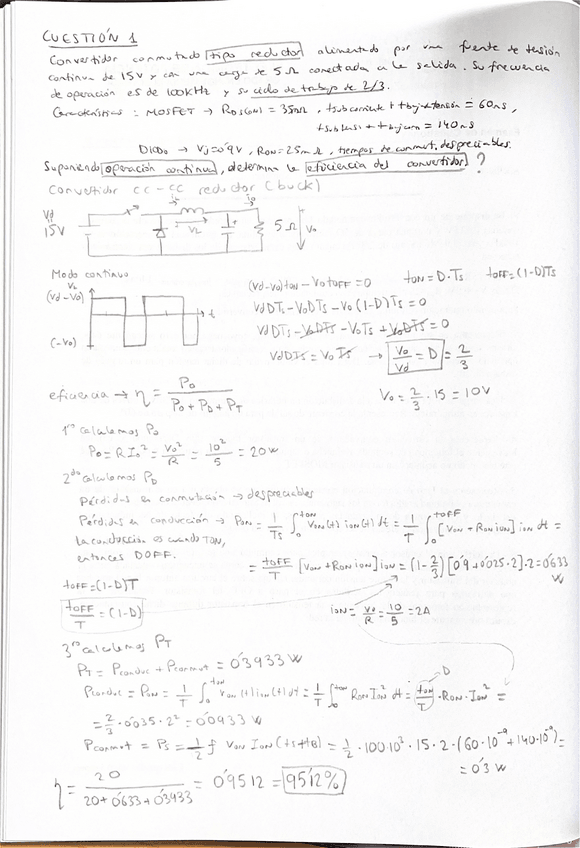 CUESTIÓN 1
Convertidor conmutado tipo reductor alimentado por una fuente de tensión
continua de 15V y con una carga de 5 Ω conectada a la salida. Su frecuencia
de operación es de 100KHz y su ciclo de trabajo de 2/3.
Características: MOSFET → RDS(ON) = 35mΩ, tsub corriente + tbaj tensión = 60 ns,
tsub tensi + tbaj corri = 140 ns
DIODO → Vj = 0'9V, RON = 25mΩ, tiempos de conmut. despreciables.
Suponiendo operación continua, determina la eficiencia del convertidor?
Convertidor cc-cc reductor (buck)
Vd
15V
iL
io
VL
5 Ω
Vo
Modo continuo
VL
(Vd-Vo)
t
(-Vo)
(Vd-Vo)tON - Vo tOFF = 0 tON = D·Ts tOFF = (1-D)Ts
VdDTs - VoDTs - Vo(1-D)Ts = 0
VdDTs - VoDTs - VoTs + VoDTs = 0
VdDTs = VoTs → Vo/Vd = D = 2/3
Vo = 2/3 · 15 = 10V
eficiencia → η = Po / (Po + PD + PT)
1º calculemos Po
Po = R Io² = Vo²/R = 10²/5 = 20W
2do calculemos PD
Pérdidas en conmutación → despreciables
Pérdidas en conducción → PON = 1/Ts ∫₀^tON VON(t) iON(t) dt = 1/T ∫₀^tOFF [VON + RON iON] iON dt =
la conducción es cuando TON,
entonces DOFF.
= tOFF/T [VON + RON iON] iON = (1 - 2/3)[0'9 + 0'025·2]·2 = 0'633 W
tOFF = (1-D)T
tOFF/T = (1-D)
iON = Vo/R = 10/5 = 2A
3ro calculemos PT
PT = Pconduc + Pconmut = 0'3933 W
D
Pconduc = PON = 1/T ∫₀^tON VON(t) iON(t) dt = 1/T ∫₀^tON RON ION² dt = tON/T · RON · ION² =
= 2/3 · 0'035 · 2² = 0'0933 W
Pconmut = Ps = 1/2 f VON ION (ts+tB) = 1/2 · 100·10³ · 15 · 2 · (60·10⁻⁹ + 140·10⁻⁹) =
= 0'3 W
η = 20 / (20 + 0'633 + 0'3933) = 0'9512 = 95'12%